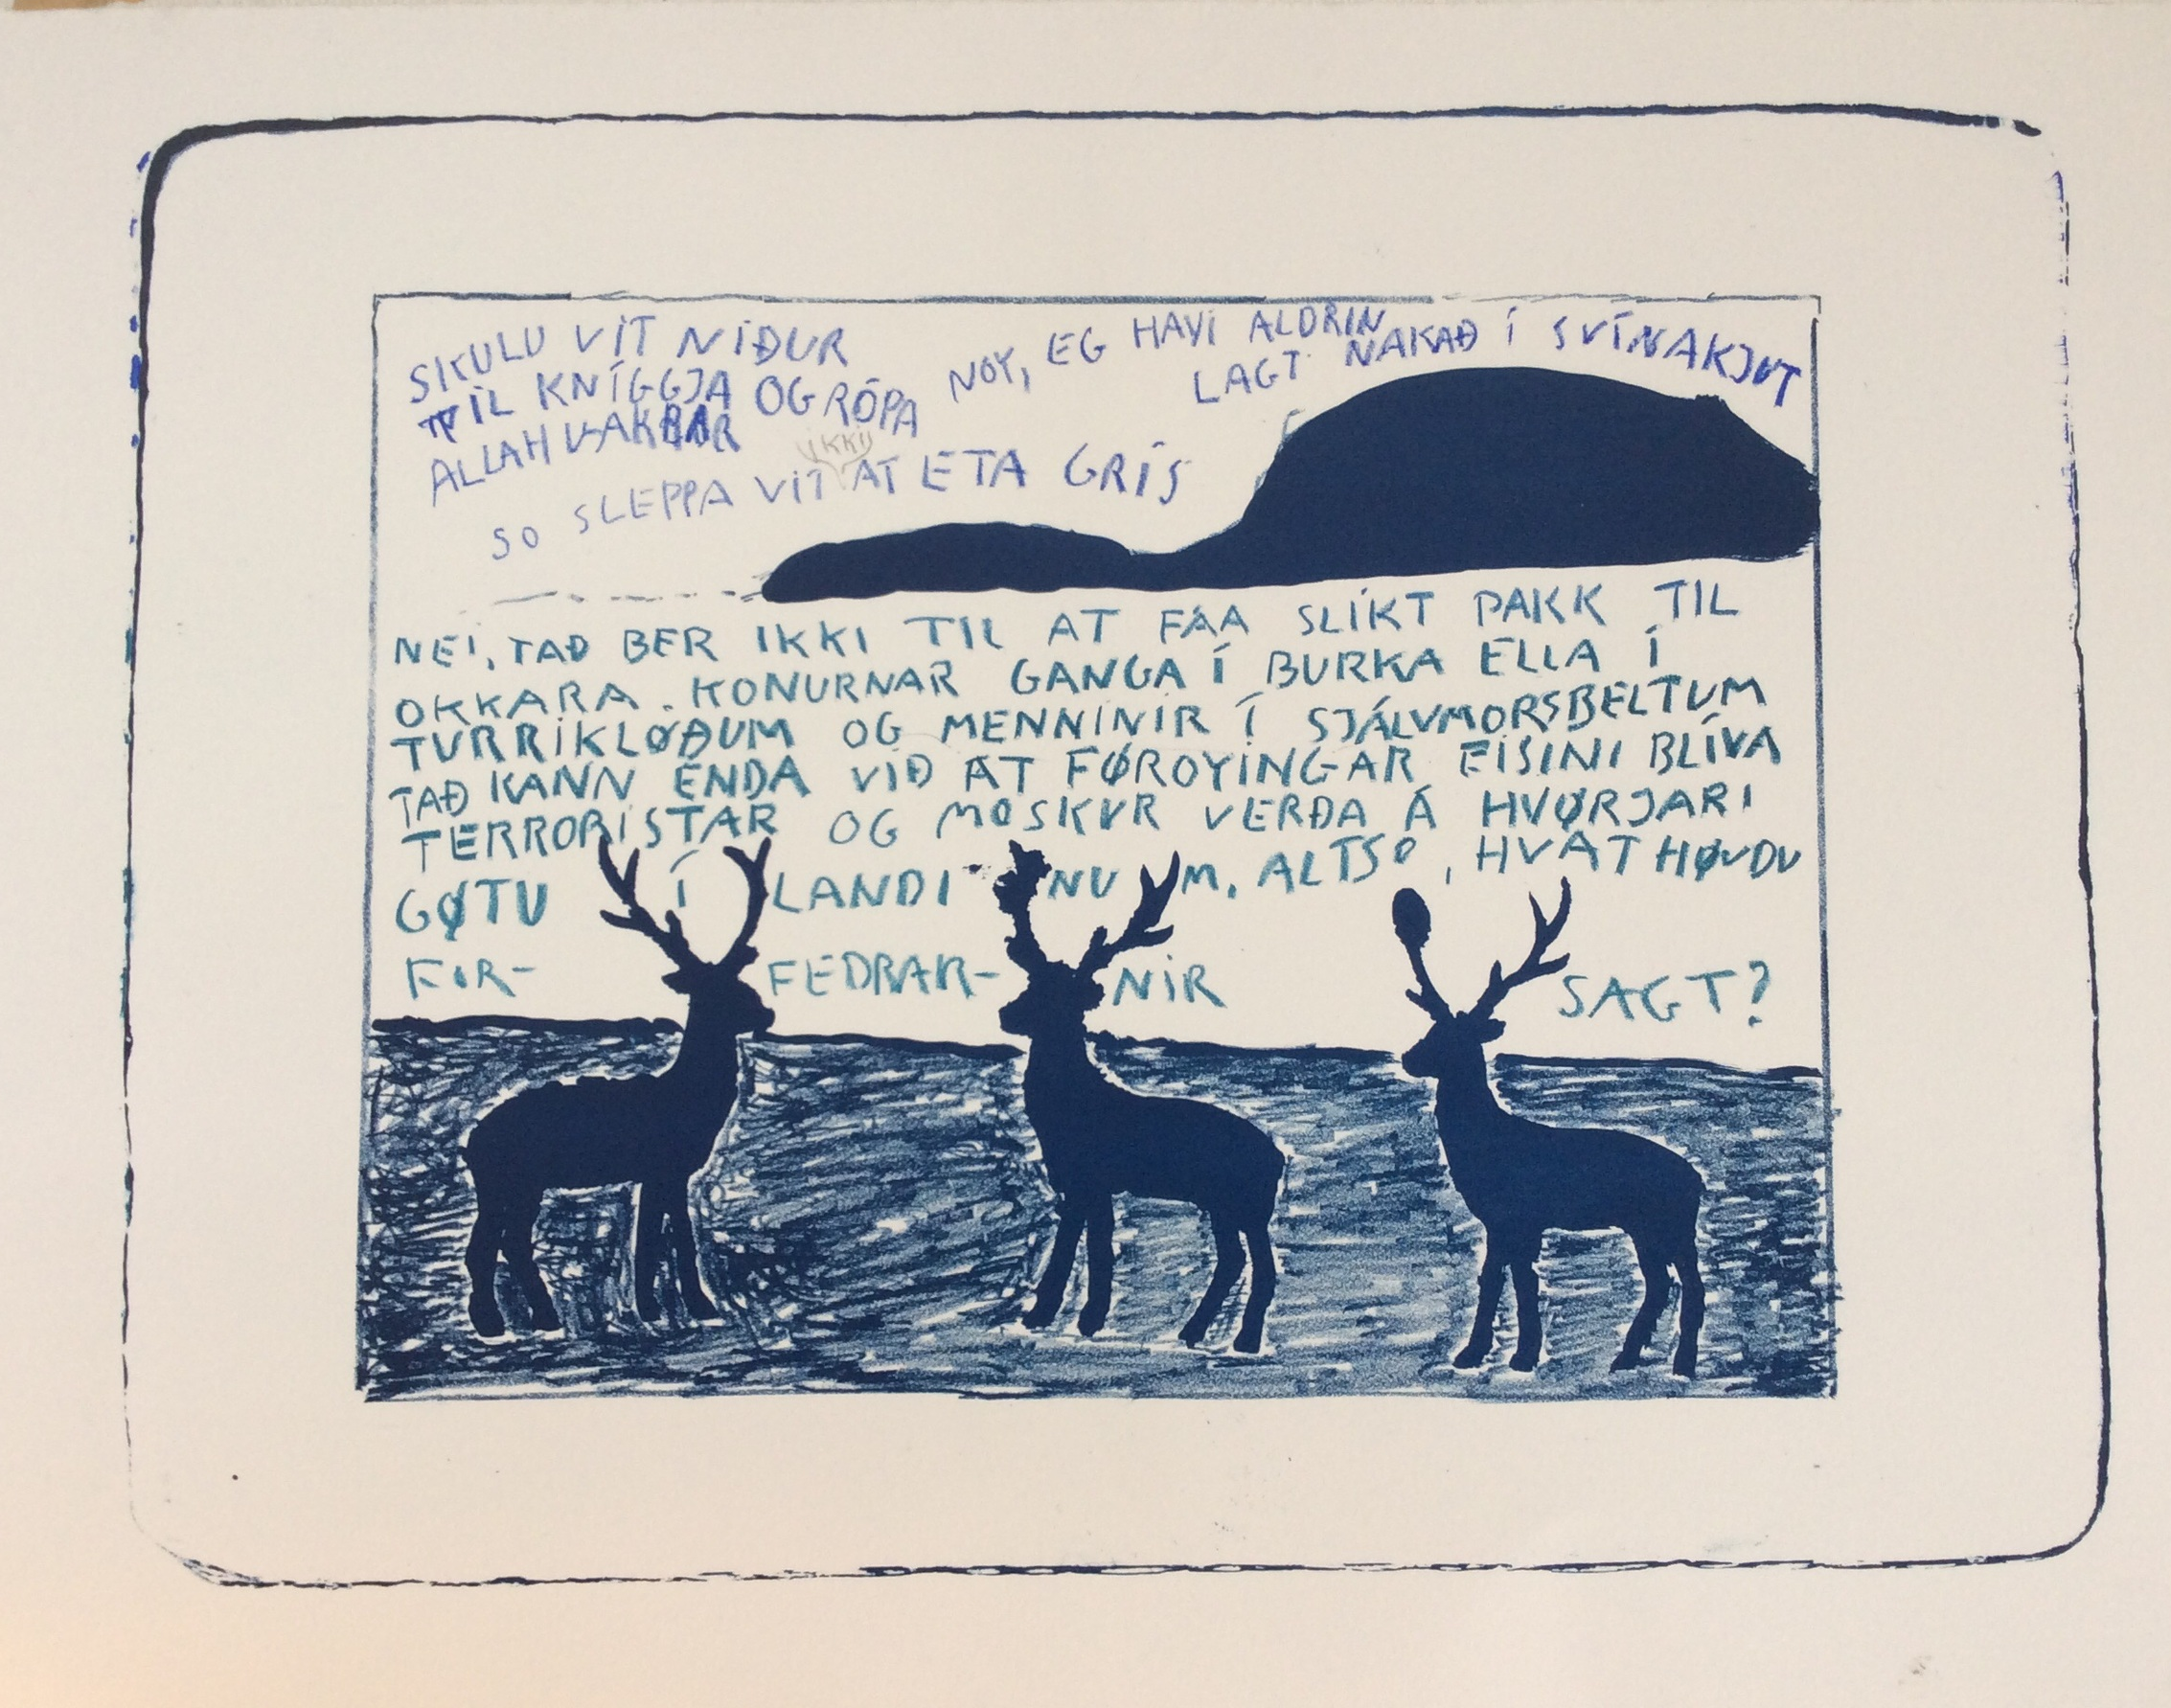 SKULU VIT NIÐUR
TIL KNÍGGJA OG RÓPA
ALLAH UAKBAR
NOY, EG HAVI ALDRIN
LAGT NAKAÐ Í SVÍNAKJØT
IKKI
SO SLEPPA VIT AT ETA GRÍS
NEI, TAÐ BER IKKI TIL AT FÁA SLÍKT PAKK TIL
OKKARA. KONURNAR GANGA Í BURKA ELLA Í
TURRIKLØÐUM OG MENNINIR Í SJÁLVMORSBELTUM
TAÐ KANN ENDA VIÐ AT FØROYINGAR EISINI BLÍVA
TERRORISTAR OG MOSKUR VERÐA Á HVØRJARI
GØTU Í LANDINUM, ALTSO, HVAT HØVDU
FOR- FEDRAR- NIR SAGT?